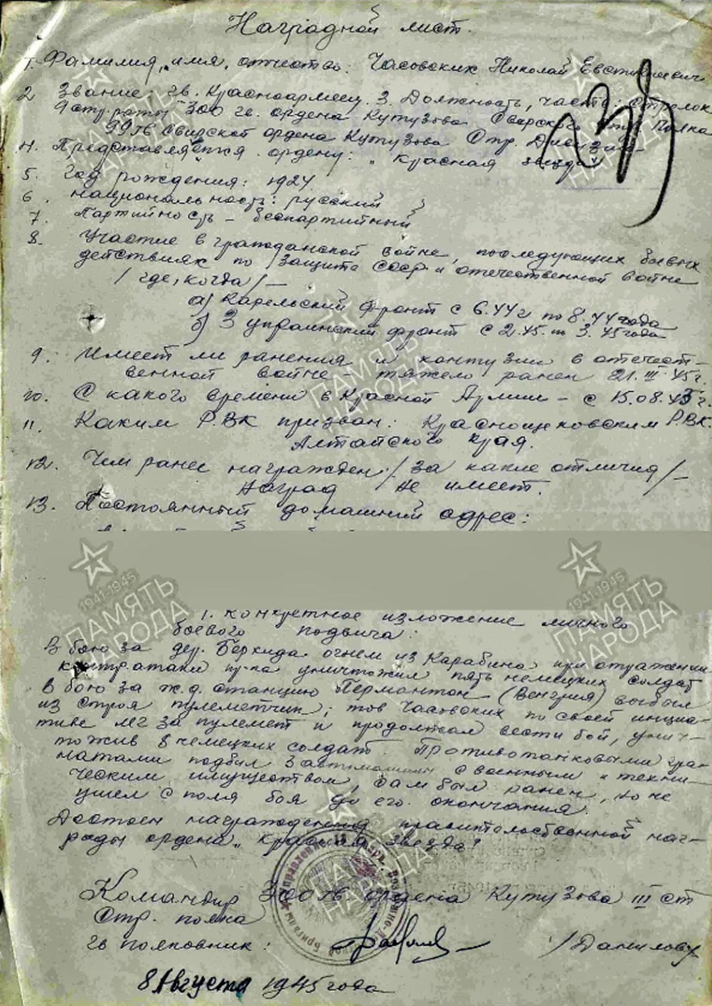 Наградной лист.
1. Фамилия, имя, отчество: Часовских Николай Евстафьевич
2. Звание: гв. Красноармеец. 3. Должность, часть: стрелок
роты 300 гв. ордена Кутузова Свирского стр. полка
99 гв. Свирской ордена Кутузова Стр. Дивизии
4. Представляется к ордену: "Красная звезда"
5. Год рождения: 1924
6. Национальность: русский
7. Партийность – беспартийный
8. Участие в гражданской войне, последующих боевых
действиях по защите СССР и отечественной войне
/где, когда/ –
а) Карельский фронт с 6.44 г по 8.44 года
б) 3 украинский фронт с 2.45 по 3.45 года
9. Имеет ли ранения и контузии в отечест-
венной войне тяжело ранен 21.III.45 г.
10. С какого времени в Красной Армии – с 15.08.43 г.
11. Каким РВК призван: Краснощековским РВК
Алтайского края.
12. Чем ранее награжден /за какие отличия/ –
Наград не имеет.
13. Постоянный домашний адрес:
1. конкретное изложение личного
боевого подвига:
В бою за дер. Беркида огнем из Карабина при отражении
контратаки пр-ка уничтожил пять немецких солдат
В бою за ж.д. станцию Пермантон (Венгрия) выбыл
из строя пулеметчик; тов Часовских по своей инициа-
тиве лег за пулемет и продолжал вести бой, унич-
тожив 8 немецких солдат. Противотанковыми гра-
натами подбил 3 автомашины с военным и техни-
ческим имуществом, сам был ранен, но не
ушел с поля боя до его окончания.
Достоен награждения правительственной наг-
рады ордена "Красная Звезда"
Командир 300 гв ордена Кутузова III ст
Стр. полка
гв полковник: /Данилов/
8 Августа 1945 года
1941-1945
ПАМЯТЬ
НАРОДА